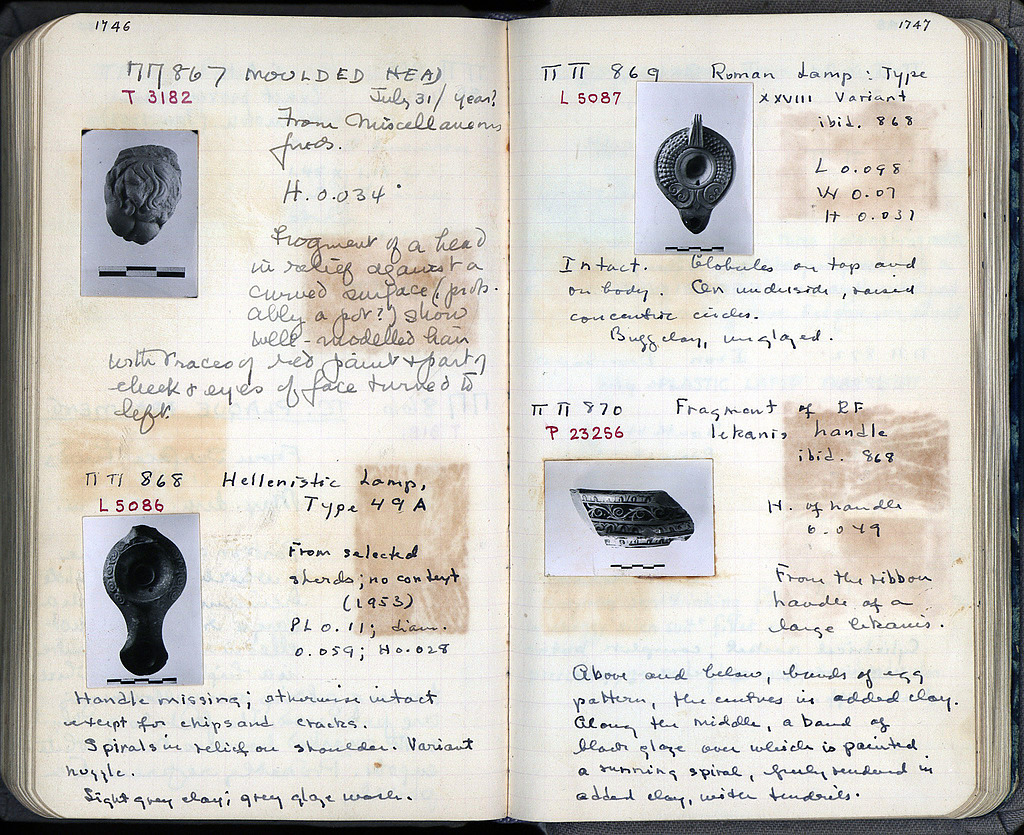 1746
ΠΠ 867 MOULDED HEAD
T 3182
July 31/ year?
From Miscellaneous
finds.
H. 0.034
Fragment of a head
in relief against a
curved surface (prob-
ably a pot?) show
well-modelled hair
with traces of red paint & part of
cheek & eyes of face turned to
left.
ΠΠ 868 Hellenistic Lamp,
L 5086 Type 49 A
From selected
sherds; no context
(1953)
PL 0.11; diam.
0.059; H 0.028
Handle missing; otherwise intact
except for chips and cracks.
Spirals in relief on shoulder. Variant
nozzle.
Light grey clay; grey glaze wash.
1747
ΠΠ 869 Roman Lamp: Type
L 5087 XXVIII Variant
ibid. 868
L 0.098
W 0.07
H 0.031
Intact. Globules on top and
on body. On underside, raised
concentric circles.
Buff clay, unglazed.
ΠΠ 870 Fragment of RF
P 23256 lekanis handle
ibid. 868
H. of handle
0.049
From the ribbon
handle of a
large lekanis.
Above and below, bands of egg
pattern, the centres in added clay.
Along the middle, a band of
black glaze over which is painted
a running spiral, freely rendered in
added clay, with tendrils.